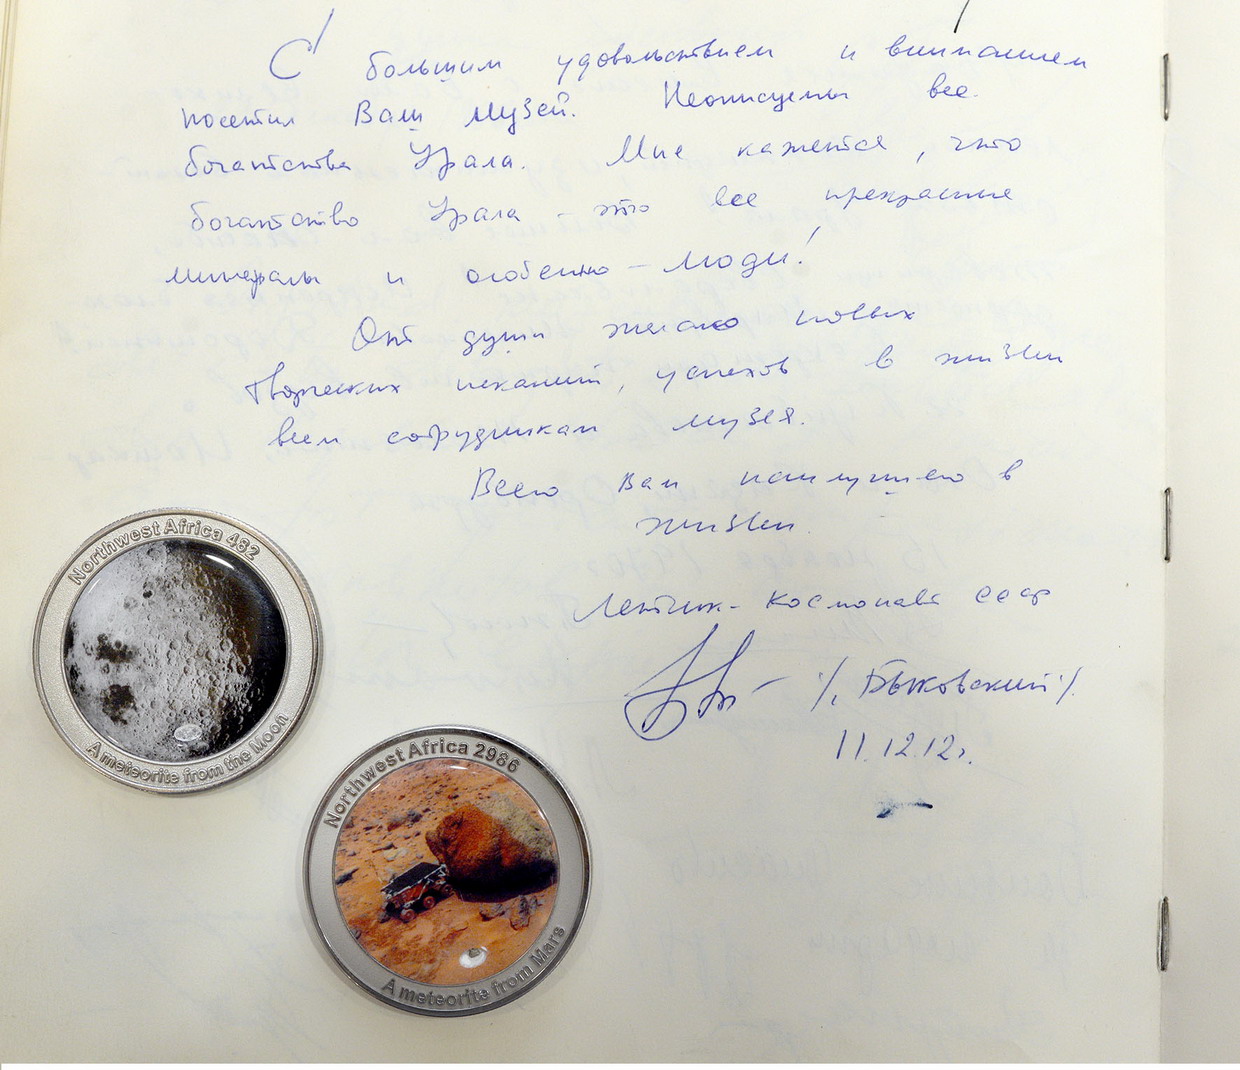 С большим удовольствием и вниманием
посетил Ваш музей. Неописуемы все
богатства Урала. Мне кажется, что
богатство Урала - это все прекрасные
минералы и особенно – люди!
От души желаю новых
творческих исканий, успехов в жизни
всем сотрудникам музея.
Всего Вам наилучшего в
жизни.
Летчик-космонавт СССР
/. Быковский /.
11.12.12г.
Northwest Africa 482
A meteorite from the Moon
Northwest Africa 2986
A meteorite from Mars